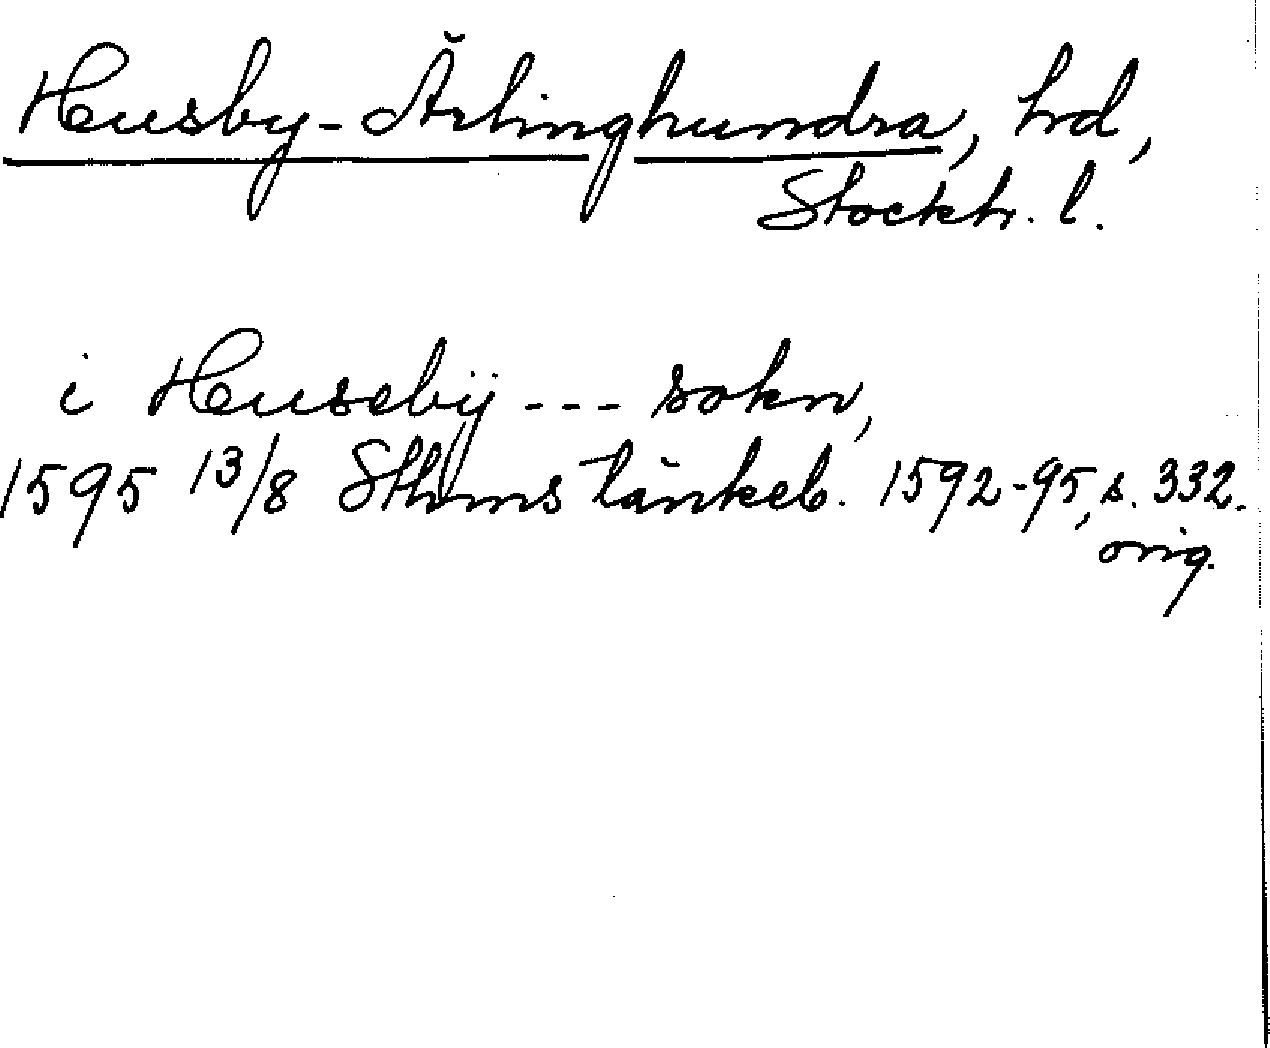 Husby-Ärlinghundra, hd,
Stockh. l.
i Husebÿ --- sokn,
1595 13/8 Sthms tänkeb. 1592-95, s. 332.
orig.